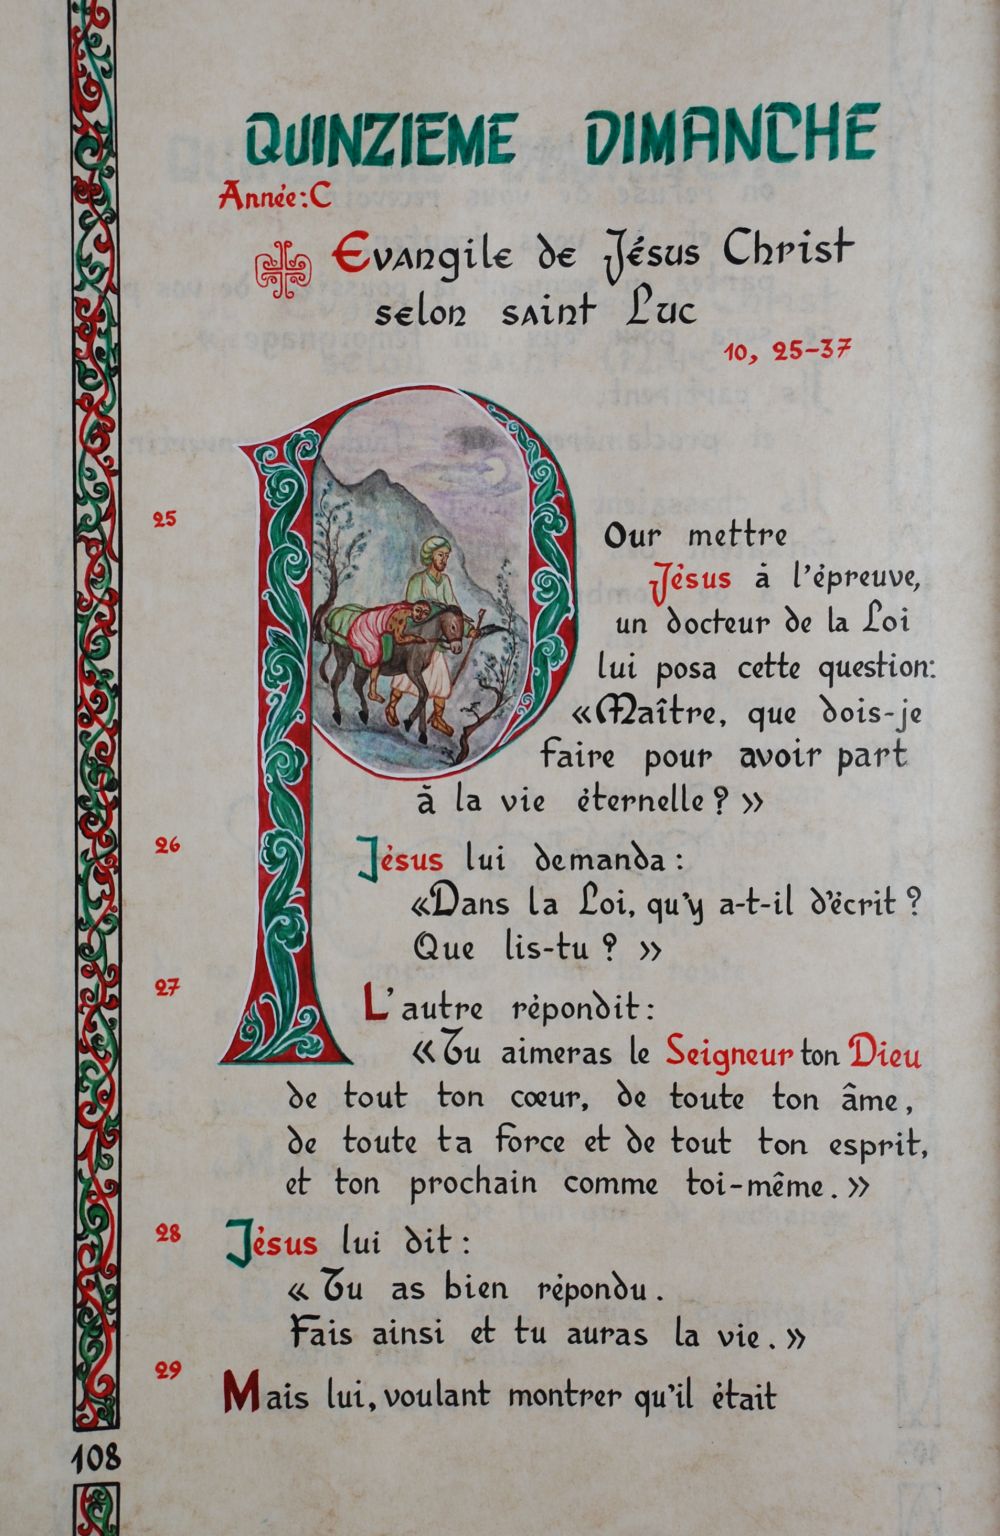 QUINZIEME DIMANCHE
Année: C
Evangile de Jésus Christ
selon saint Luc
10, 25-37
25
POur mettre
Jésus à l'épreuve,
un docteur de la Loi
lui posa cette question:
«Maître, que dois-je
faire pour avoir part
à la vie éternelle? »
26
Jésus lui demanda :
«Dans la Loi, qu'y a-t-il d'écrit ?
Que lis-tu ? »
27
L'autre répondit :
«Tu aimeras le Seigneur ton Dieu
de tout ton cœur, de toute ton âme,
de toute ta force et de tout ton esprit,
et ton prochain comme toi-même. »
28
Jésus lui dit :
« Tu as bien répondu.
Fais ainsi et tu auras la vie. »
29
Mais lui, voulant montrer qu'il était
108